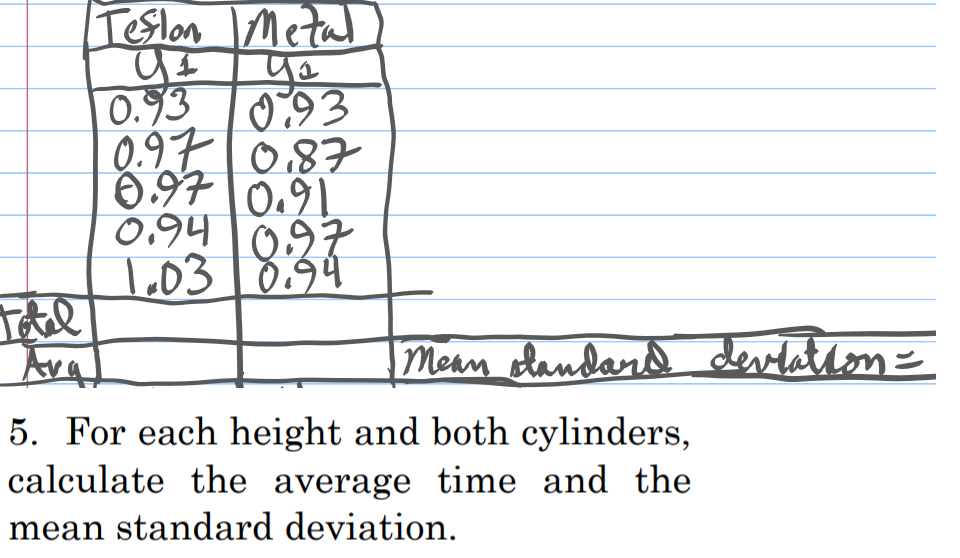 Teflon Metal
y1 y2
0.93 0.93
0.97 0.87
0.97 0.91
0.94 0.97
1.03 0.94
Total
Avg Mean standard deviation =
5. For each height and both cylinders,
calculate the average time and the
mean standard deviation.